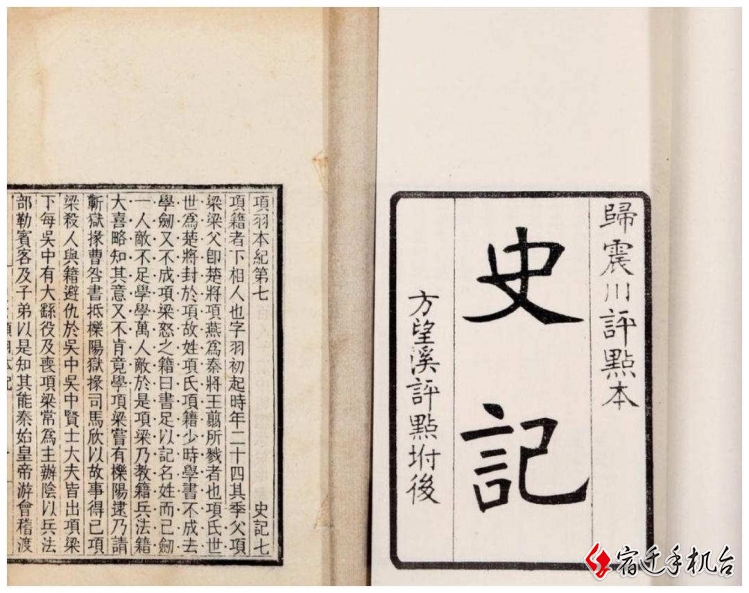 歸震川評點本
史記
方望溪評點坿後
項羽本紀第七 史記七
項籍者下相人也字羽初起時年二十四其季父項
梁梁父卽楚將項燕爲秦將王翦所戮者也項氏世
世爲楚將封於項故姓項氏項籍少時學書不成去
學劒又不成項梁怒之籍曰書足以記名姓而已劒
一人敵不足學學萬人敵於是項梁乃教籍兵法籍
大喜略知其意又不肯竟學項梁嘗有櫟陽逮乃請
蘄獄掾曹咎書抵櫟陽獄掾司馬欣以故事得已項
梁殺人與籍避仇於吳中吳中賢士大夫皆出項梁
下每吳中有大繇役及喪項梁常爲主辦陰以兵法
部勒賓客及子弟以是知其能秦始皇帝游會稽渡
宿迁手机台